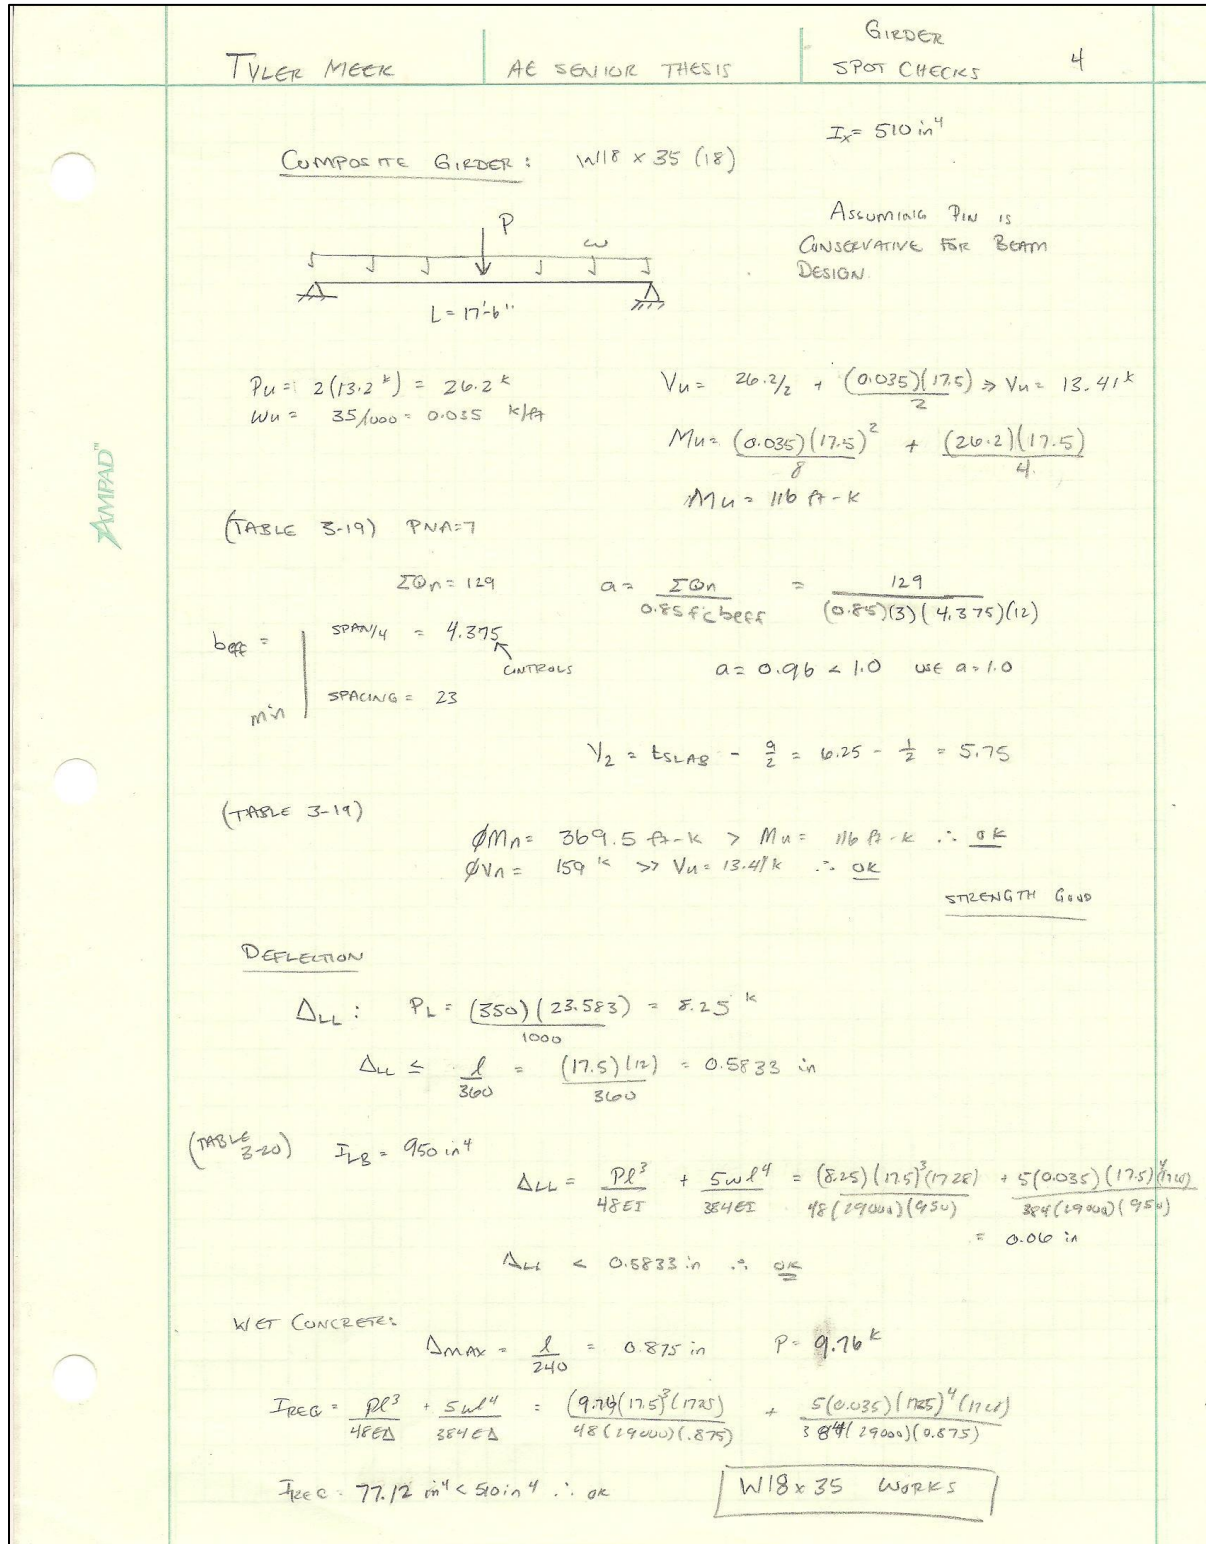 GIRDER
TYLER MEEK AE SENIOR THESIS SPOT CHECKS 4
Ix = 510 in⁴
COMPOSITE GIRDER: W18 x 35 (18)
ASSUMING PIN IS
CONSERVATIVE FOR BEAM
DESIGN.
P
ω
L = 17'-6"
Pu = 2(13.2 k) = 26.2 k
wu = 35/1000 = 0.035 k/ft
Vu = 26.2/2 + (0.035)(17.5)/2 ⇒ Vu = 13.41 k
Mu = (0.035)(17.5)²/8 + (26.2)(17.5)/4.
Mu = 116 ft-k
AMPAD™
(TABLE 3-19) PNA=7
ΣQn = 129
a = ΣQn/0.85f'c beff = 129/(0.85)(3)(4.375)(12)
beff = min
SPAN/4 = 4.375
CONTROLS
SPACING = 23
a = 0.96 < 1.0 USE a = 1.0
Y2 = tSLAB - a/2 = 6.25 - 1/2 = 5.75
(TABLE 3-19)
ØMn = 369.5 ft-k > Mu = 116 ft-k ∴ OK
ØVn = 159 k >> Vu = 13.41 k ∴ OK
STRENGTH GOOD
DEFLECTION
ΔLL: PL = (350)(23.583)/1000 = 8.25 k
ΔLL ≤ l/360 = (17.5)(12)/360 = 0.5833 in
(TABLE 3-20) ILB = 950 in⁴
ΔLL = Pl³/48EI + 5wl⁴/384EI = (8.25)(17.5)³(1728)/48(29000)(950) + 5(0.035)(17.5)⁴(1728)/384(29000)(950)
= 0.06 in
ΔLL < 0.5833 in ∴ OK
WET CONCRETE:
ΔMAX = l/240 = 0.875 in P = 9.76 k
IREQ = Pl³/48EΔ + 5wl⁴/384EΔ = (9.76)(17.5)³(1728)/48(29000)(.875) + 5(0.035)(17.5)⁴(1728)/384(29000)(0.875)
IREQ = 77.12 in⁴ < 510 in⁴ ∴ OK
W18 x 35 WORKS